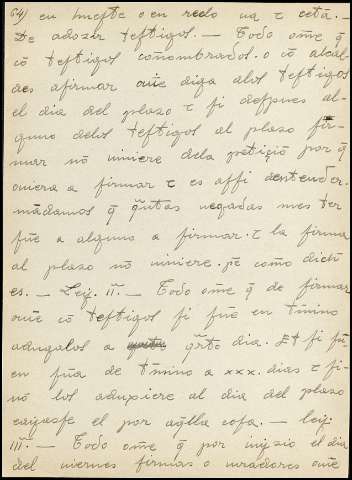 64) en hueste o en redo ua τ cetã. —
De adozir teſtigos. — Todo om̃e q̃
cõ teſtigos coñombrados. o cõ alcal-
des afirmar oũe diga alos teſtigos
el dia del plazo τ ſi deſpues al-
guno delos teſtigos al plazo fir-
mar nõ uiniere dela petiçiõ por q̃
ouiera a firmar τ es aſſi dentender.
mãdamos q̃ q̃ntas uegadas mester
fũe a alguno a firmar. τ la firma
al plazo nõ uiniere. pẽ como dich
es. — Leỹ. IIª. — Todo om̃e q̃ de firmar
oũe cõ teſtigos ſi fũe en t̃mino
adugalos a q̃rto dia. Et ſi fũ-
en fũa de t̃mino a xxx. dias τ ſi-
nõ los aduxiere al dia del plazo
cayaſſe el por aq̃lla coſa. — leỹ.
IIIª. — Todo om̃e q̃ por iuyzio el dia
del uiernes firmas o iuradores oũe